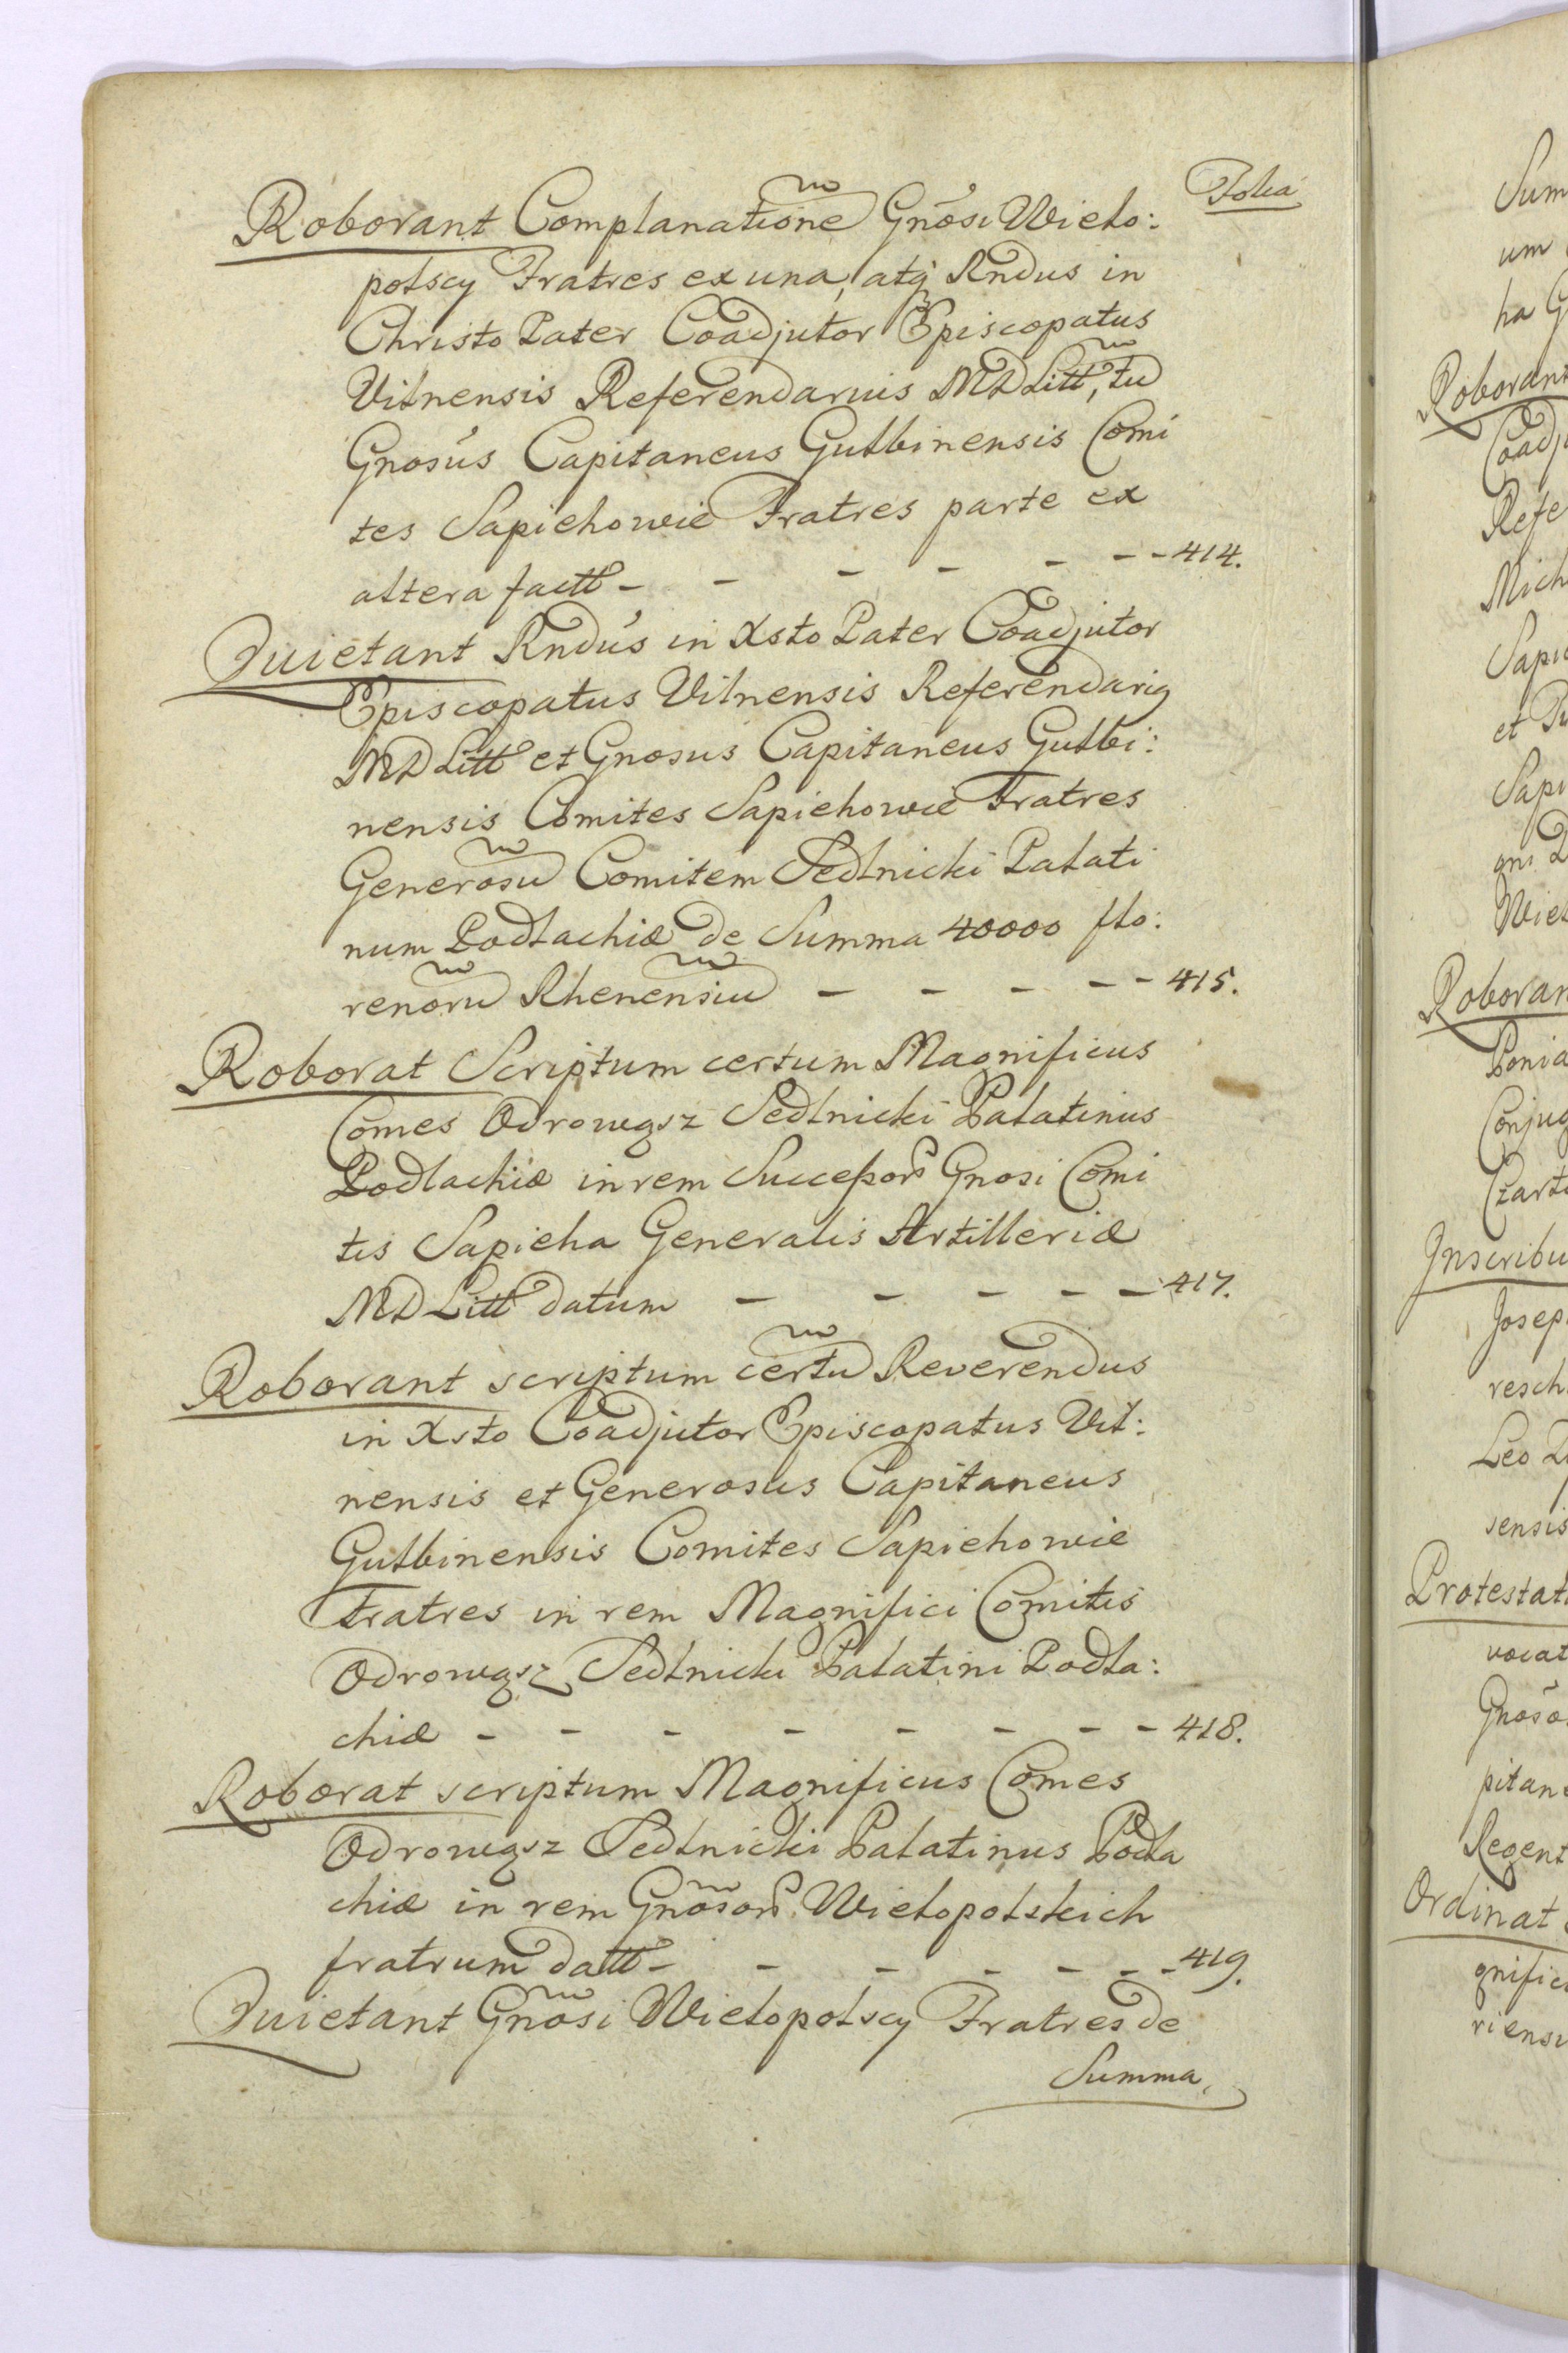 Folia
Roborant Complanatione Gnosi Wielo:
polscy Fratres ex una, atq Rndus in
Christo Pater Coadjutor Episcopatus
Vilnensis Referendarius MD Litt, tu
Gnosus Capitaneus Gulbinensis Comi
tes Sapiehowie Fratres parte ex
altera factt - - - - - - - 414.
Quietant Rndus in Xsto Pater Coadjutor
Episcopatus Vilnensis Referendariq
MD Litt et Gnosus Capitaneus Gulbi:
nensis Comites Sapiehowie Fratres
Generosu Comitem Sedlnicki Palati
num Podlachiæ de Summa 40000 flo:
renoru Rhenensiu - - - - - 415.
Roborat Scriptum certum Magnificus
Comes Odrowąsz Sedlnicki Palatinus
Podlachiæ in rem Successors Gnosi Comi
tis Sapieha Generalis Artilleriæ
MD Litt datum - - - - - 417.
Roborant scriptum certu Reverendus
in Xsto Coadjutor Episcopatus Vil:
nensis et Generosus Capitaneus
Gulbinensis Comites Sapiehowie
Fratres in rem Magnifici Comitis
Odrowąsz Sedlnicki Palatini Podla:
chiæ - - - - - - - - 418.
Roborat scriptum Magnificus Comes
Odrowąsz Sedlnicki Palatinus Podla
chiæ in rem Gnosors Wielopolskich
fratrum datt - - - - - - 419.
Quietant Gnosi Wielopolscy Fratres de
Summa
Sum
um
ha G
Roborant
Coadju
Refe
Mich
Sapie
et
Sapi
gni
Wiel
Roboran
Ponia
Conjug
Czart
Inscribu
Joseph
resch
Leo
sensis
Protestat
vocat
Gnoso
pitane
Regent
Ordinat
gnific
riensi